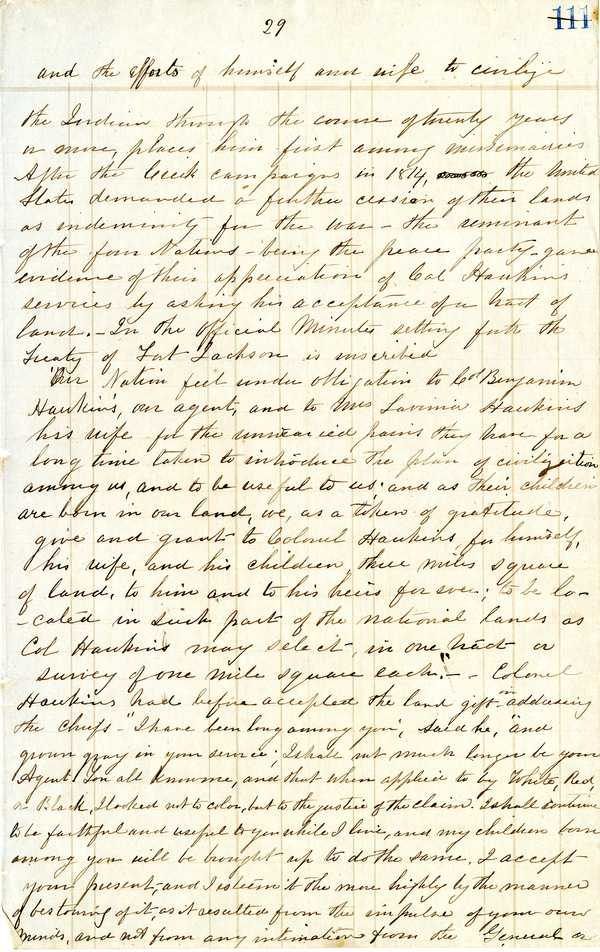 29
111
and the efforts of himself and wife to civilize
the Indian through the course of twenty years
or more, places him first among missionaries
After the Creek campaigns in 1814, the United
States demanded a further cession of their lands
as indemnity for the war - the remnant
of the four Nations - being the peace party - gave
evidence of their appreciation of Col Hawkins
services by asking his acceptance of a tract of
land. - In the Official Minutes setting forth the
Treaty of Fort Jackson is inscribed
"Our Nation feel under obligation to Col Benjamin
Hawkins, our agent, and to Mrs Lavinia Hawkins
his wife for the unwearied pains they have for a
long time taken to introduce the plan of civilization
among us, and to be useful to us; and as their children
are born in our land, we, as a token of gratitude,
give and grant to Colonel Hawkins for himself,
his wife, and his children, three miles square
of land, to him and to his heirs for ever; to be lo-
-cated in such part of the national lands as
Col Hawkins may select, in one tract or
survey of one mile square each." - - Colonel
Hawkins had before accepted the land gift - in addressing
the Chiefs - "I have been long among you", said he, "and
grown gray in your service; I shall not much longer be your
Agent. You all know me, and that when applied to by White, Red,
or Black, I looked not to color, but to the justice of the claim. I shall continue
to be faithful and useful to you while I live, and my children born
among you will be brought up to do the same. I accept
your present, and I esteem it the more highly by the manner
of bestowing of it, as it resulted from the impulse of your own
minds, and not from any intimation from the General or